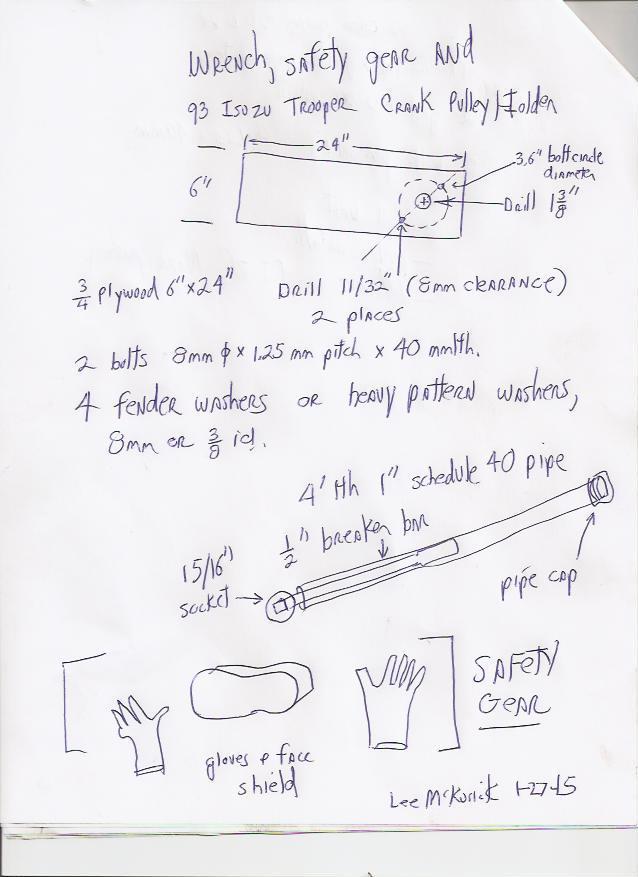 Wrench, safety gear and
93 Isuzu Trooper Crank Pulley Holder
24"
6"
3.6" bolt circle
diameter
Drill 1 3/8"
3/4 plywood 6" x 24"
Drill 11/32" (8mm clearance)
2 places
2 bolts 8mm ϕ x 1.25 mm pitch x 40 mm lth.
4 fender washers or heavy pattern washers,
8mm or 3/8 id.
4' lth 1" schedule 40 pipe
1/2" breaker bar
15/16"
socket
pipe cap
Safety
Gear
gloves & face
shield
Lee 1-27-15